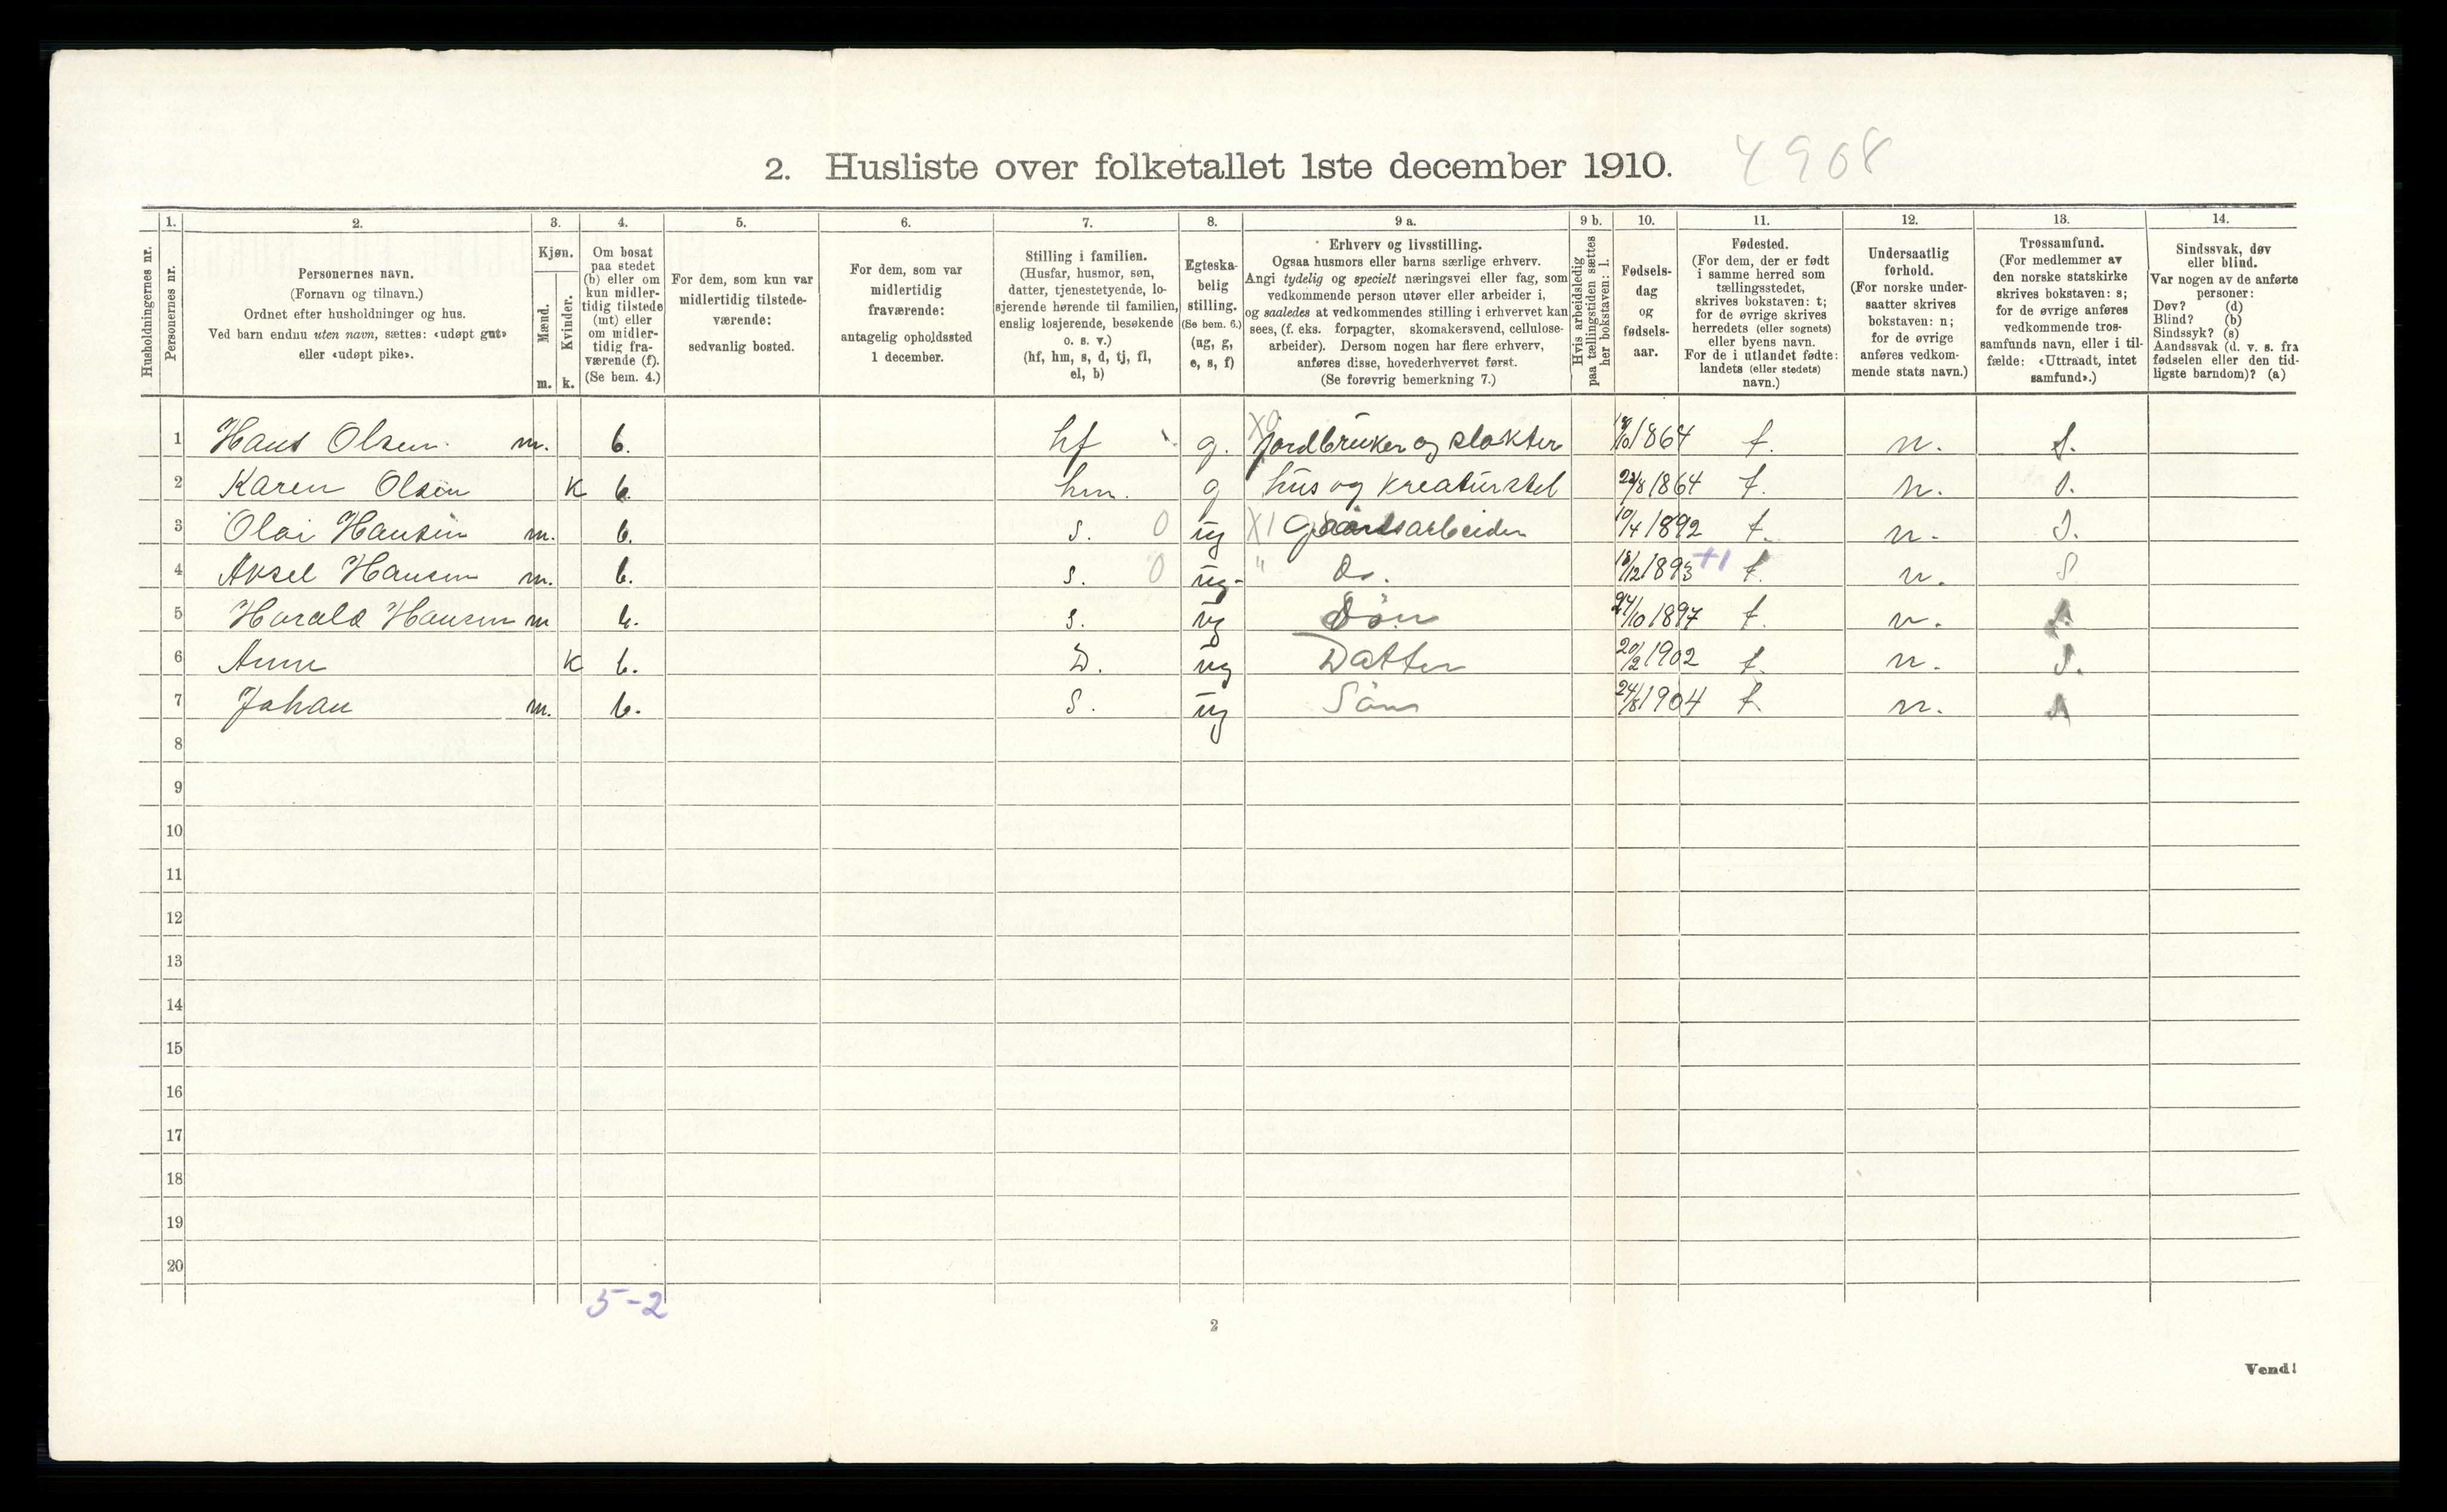 2. Husliste over folketallet 1ste december 1910. 4908
Husholdningernes nr.
1.
Personernes nr.
2.
Personernes navn.
(Fornavn og tilnavn.)
Ordnet efter husholdninger og hus.
Ved barn endnu uten navn, sættes: «udøpt gut»
eller «udøpt pike».
3.
Kjøn.
Mænd.
m.
Kvinder.
k.
4.
Om bosat
paa stedet
(b) eller om
kun midler-
tidig tilstede
(mt) eller
om midler-
tidig fra-
værende (f).
(Se bem. 4.)
5.
For dem, som kun var
midlertidig tilstede-
værende:
sedvanlig bosted.
6.
For dem, som var
midlertidig
fraværende:
antagelig opholdssted
1 december.
7.
Stilling i familien.
(Husfar, husmor, søn,
datter, tjenestetyende, lo-
sjerende hørende til familien,
enslig losjerende, besøkende
o. s. v.)
(hf, hm, s, d, tj, fl,
el, b)
8.
Egteska-
belig
stilling.
(Se bem. 6.)
(ug, g,
e, s, f)
9 a.
Erhverv og livsstilling.
Ogsaa husmors eller barns særlige erhverv.
Angi tydelig og specielt næringsvei eller fag, som
vedkommende person utøver eller arbeider i,
og saaledes at vedkommendes stilling i erhvervet kan
sees, (f. eks. forpagter, skomakersvend, cellulose-
arbeider). Dersom nogen har flere erhverv,
anføres disse, hovederhvervet først.
(Se forøvrig bemerkning 7.)
9 b.
Hvis arbeidsledig
paa tællingstiden sættes
her bokstaven: l.
10.
Fødsels-
dag
og
fødsels-
aar.
11.
Fødested.
(For dem, der er født
i samme herred som
tællingsstedet,
skrives bokstaven: t;
for de øvrige skrives
herredets (eller sognets)
eller byens navn.
For de i utlandet fødte:
landets (eller stedets)
navn.)
12.
Undersaatlig
forhold.
(For norske under-
saatter skrives
bokstaven: n;
for de øvrige
anføres vedkom-
mende stats navn.)
13.
Trossamfund.
(For medlemmer av
den norske statskirke
skrives bokstaven: s;
for de øvrige anføres
vedkommende tros-
samfunds navn, eller i til-
fælde: «Uttraadt, intet
samfund».)
14.
Sindssvak, døv
eller blind.
Var nogen av de anførte
personer:
Døv? (d)
Blind? (b)
Sindssyk? (s)
Aandssvak (d. v. s. fra
fødselen eller den tid-
ligste barndom)? (a)
1 Hans Olsen m. b. hf g. X0 Jordbruker og slakter 1864 t. n. S.
2 Karen Olsen K b. hm. g hus og kreaturstel 1864 t. n. S.
3 Olai Hansen m. b. s. 0 ug X1 Gaardsarbeider 10/4 1892 t. n. S.
4 Aksel Hansen m. b. s. 0 ug- " Do. 18/12 1893 +1 t. n. S
5 Harald Hansen m b. s. ug Søn 24/10 1897 t. n. S.
6 Anne K b. D. ug Datter 20/2 1902 t. n. S.
7 Johan m. b. S. ug Søn 24/8 1904 t. n. S
8
9
10
11
12
13
14
15
16
17
18
19
20
5-2
2
Vend!